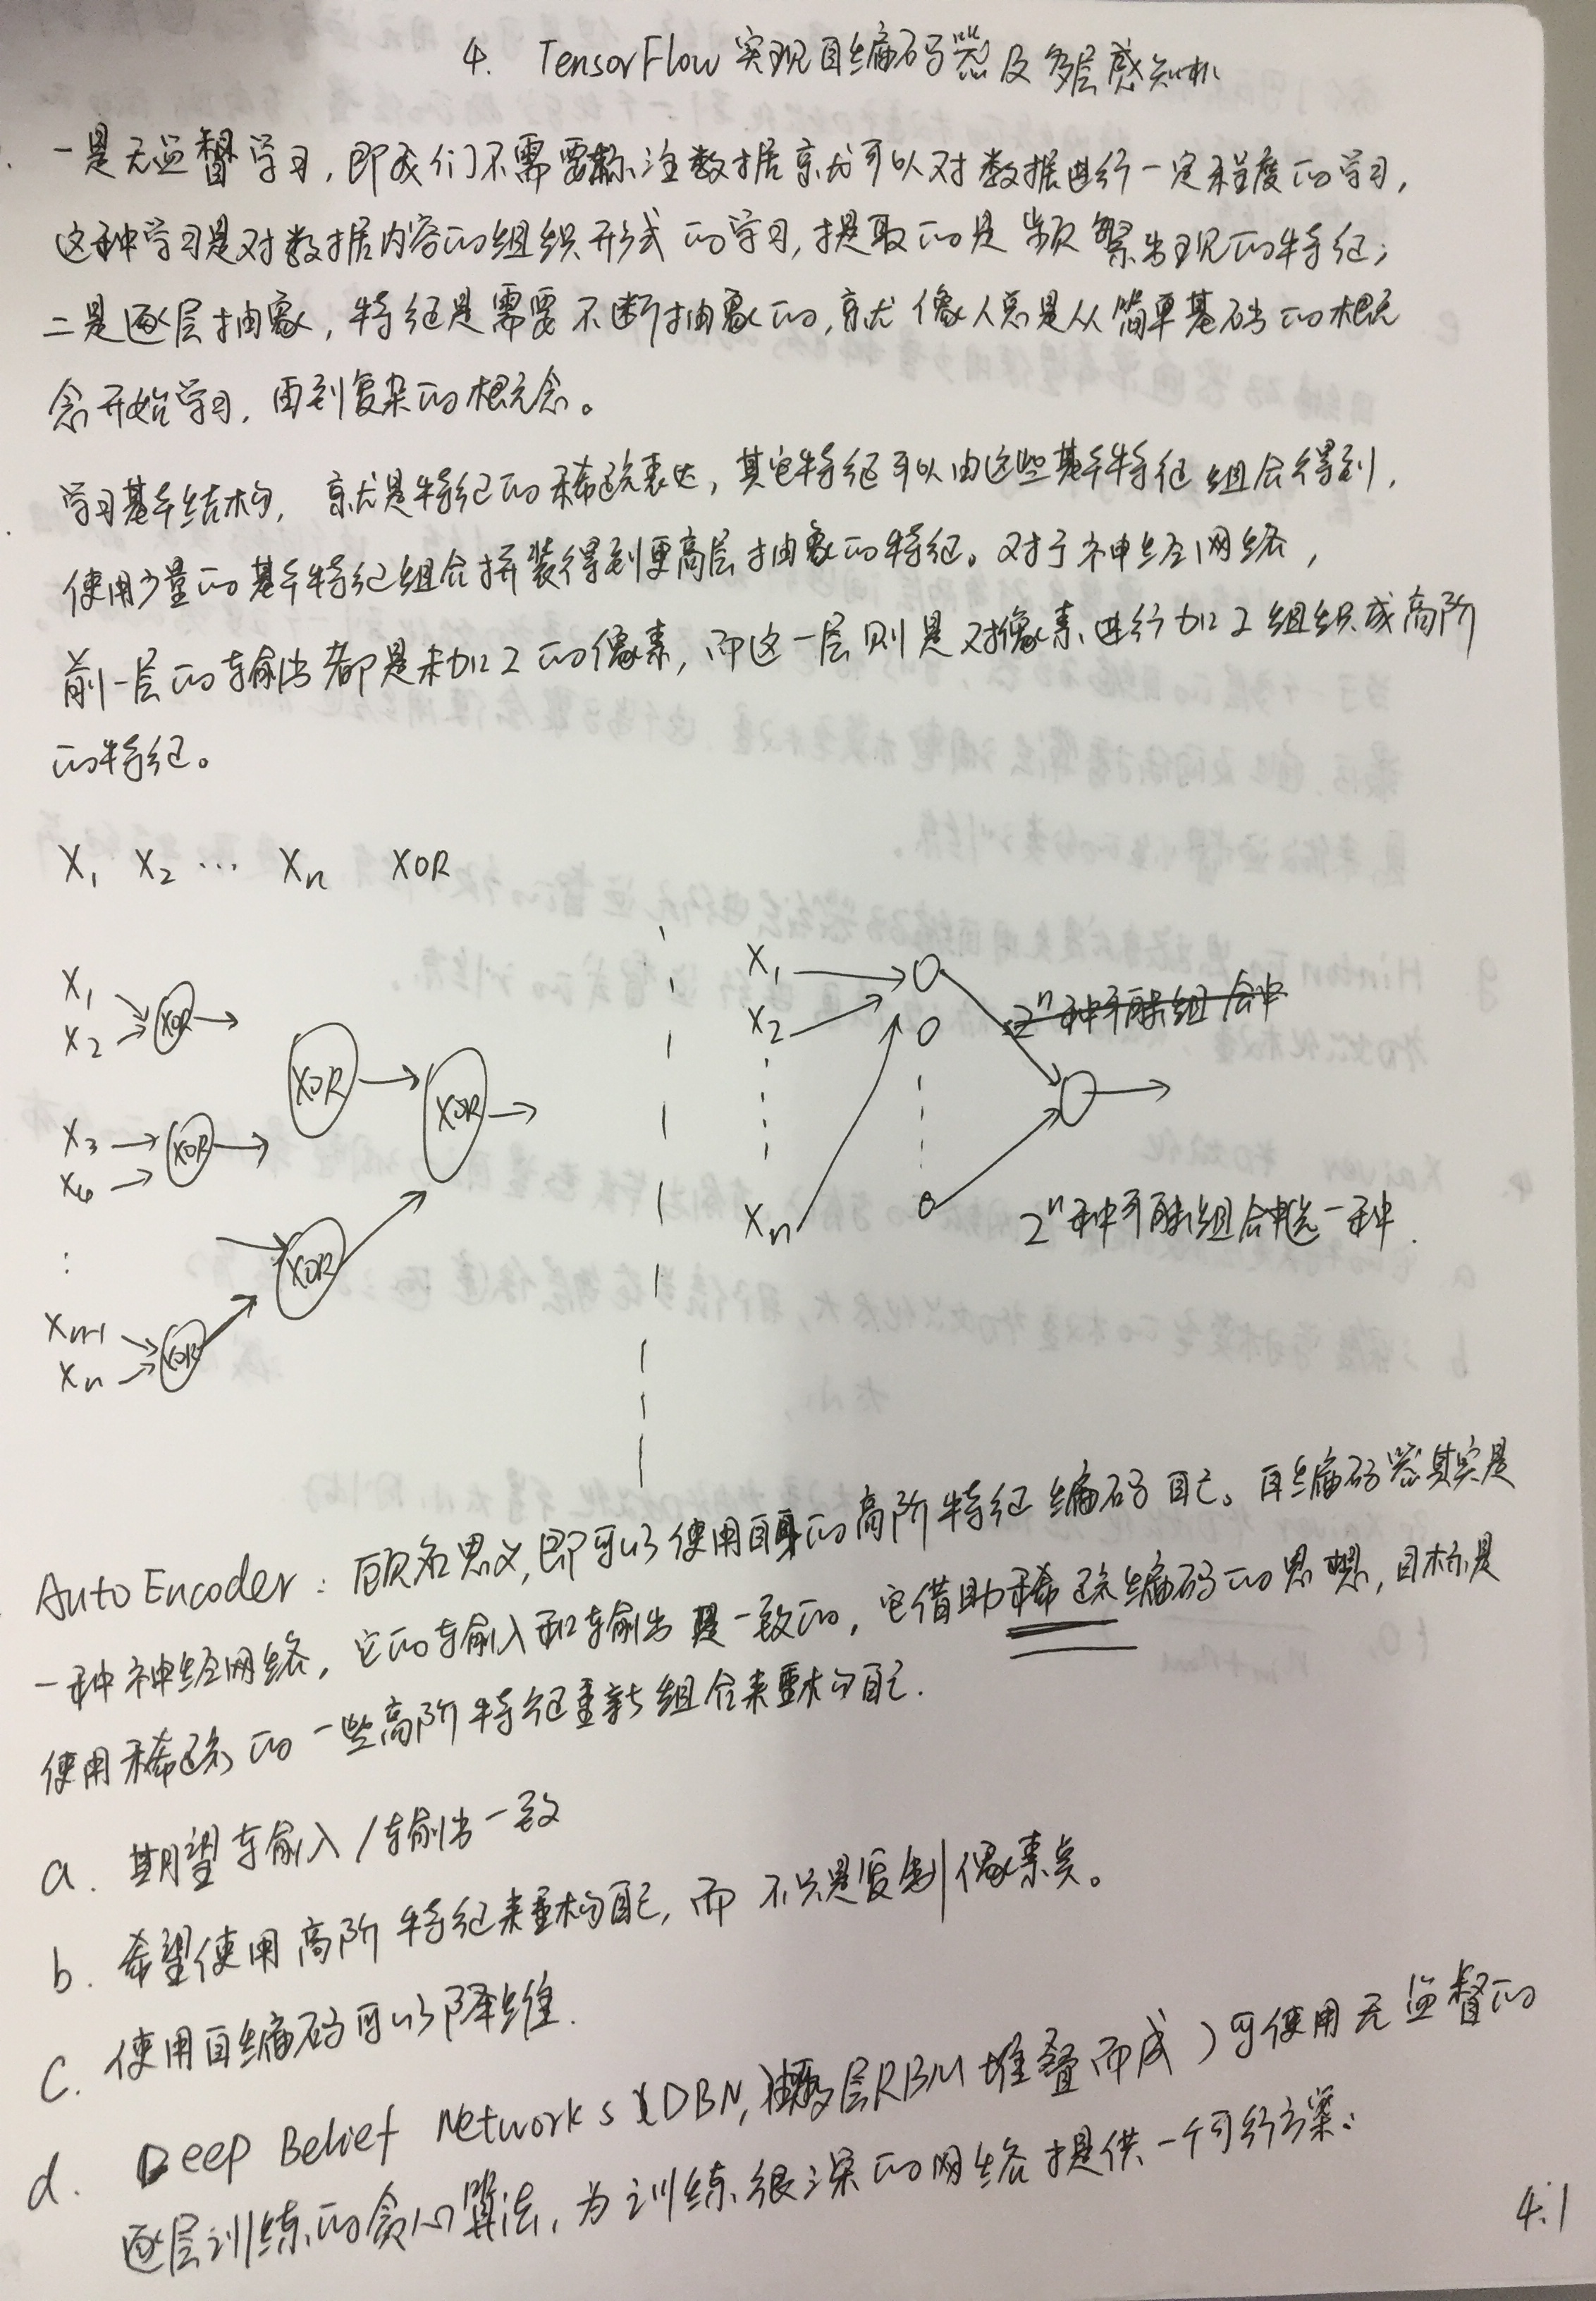 4. TensorFlow 实现自编码器及多层感知机
一是无监督学习, 即我们不需要标注数据就可以对数据进行一定程度的学习,
这种学习是对数据内容的组织形式的学习, 提取的是频繁出现的特征;
二是逐层抽象, 特征是需要不断抽象的, 就像人总是从简单基础的概
念开始学习, 再到复杂的概念。
学习基本结构, 就是特征的稀疏表达, 其它特征可以由这些基本特征组合得到,
使用少量的基本特征组合拼装得到更高层抽象的特征。对于神经网络,
前一层的输出都是未加工的像素, 而这一层则是对像素进行加工组织成高阶
的特征。
X₁ X₂ ⋯ Xₙ XOR
X₁
X₂
XOR
X₃
X₄
XOR
XOR
XOR
⋮
Xₙ₋₁
Xₙ
XOR
XOR
X₁
X₂
Xₙ
2ⁿ种可能组合中
2ⁿ种可能组合中选一种.
AutoEncoder: 顾名思义, 即可以使用自身的高阶特征编码自己。自编码器其实是
一种神经网络, 它的输入和输出是一致的, 它借助稀疏编码的思想, 目标是
使用稀疏的一些高阶特征重新组合来重构自己.
a. 期望输入/输出一致
b. 希望使用高阶特征来重构自己, 而不只是复制像素点。
c. 使用自编码可以降维.
d. Deep Belief Networks (DBN, 由多层RBM堆叠而成) 可使用无监督的
逐层训练的贪心算法, 为训练很深的网络提供一个可行方案:
4.1